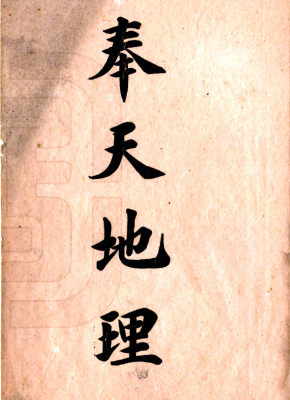 奉天地理